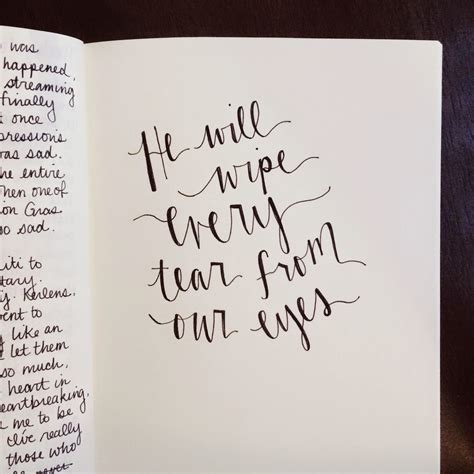 was
happened,
streaming
finally
once
pressions
was sad.
the entire
when one of
on Gras
so sad.
iti to
tary.
y. Kerlens.
went to
like an
let them
so much,
heart in
heartbreaking,
me to be
really
those who
He will
wipe
every
tear from
our eyes